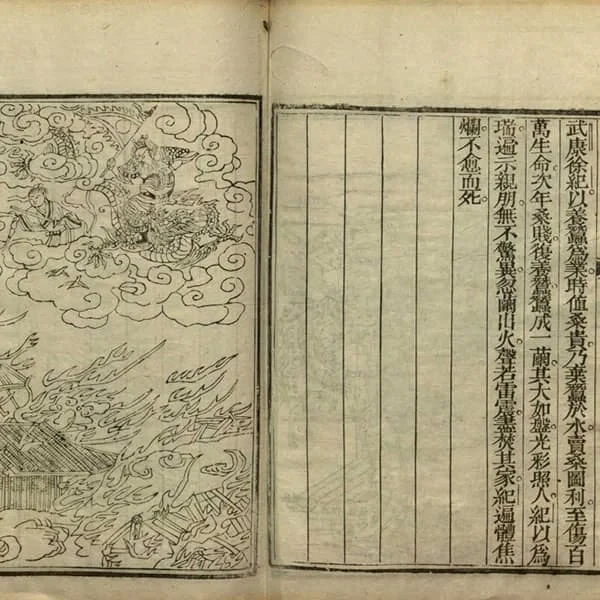 武康徐紀以養蠶為業時值桑貴乃棄蠶於水賣桑圖利至傷百
萬生命次年桑賤復養蠶蠶成一繭其大如盤光彩照人紀以為
瑞遍示親朋無不驚異忽繭出火聲若雷震盡焚其家紀遍體焦
爛不愈而死